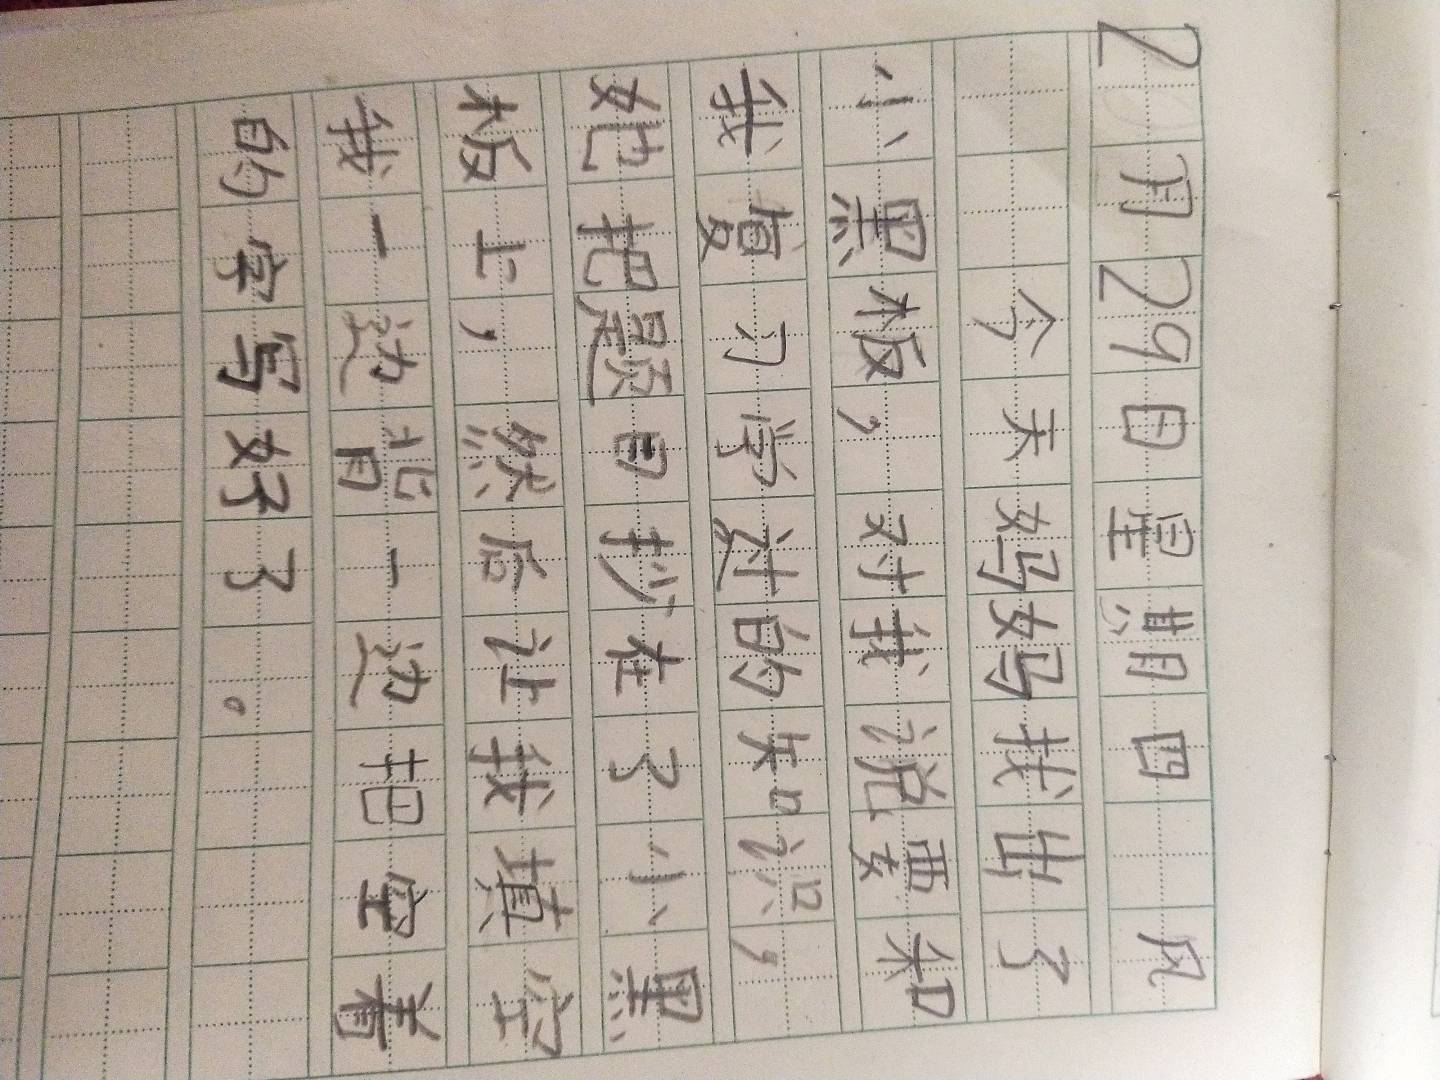 2月29日星期四 风
今天妈妈找出了
小黑板，对我说要和
我复习学过的知识，
她把题目抄在了小黑
板上，然后让我填空
我一边背一边把空着
的字写好了。